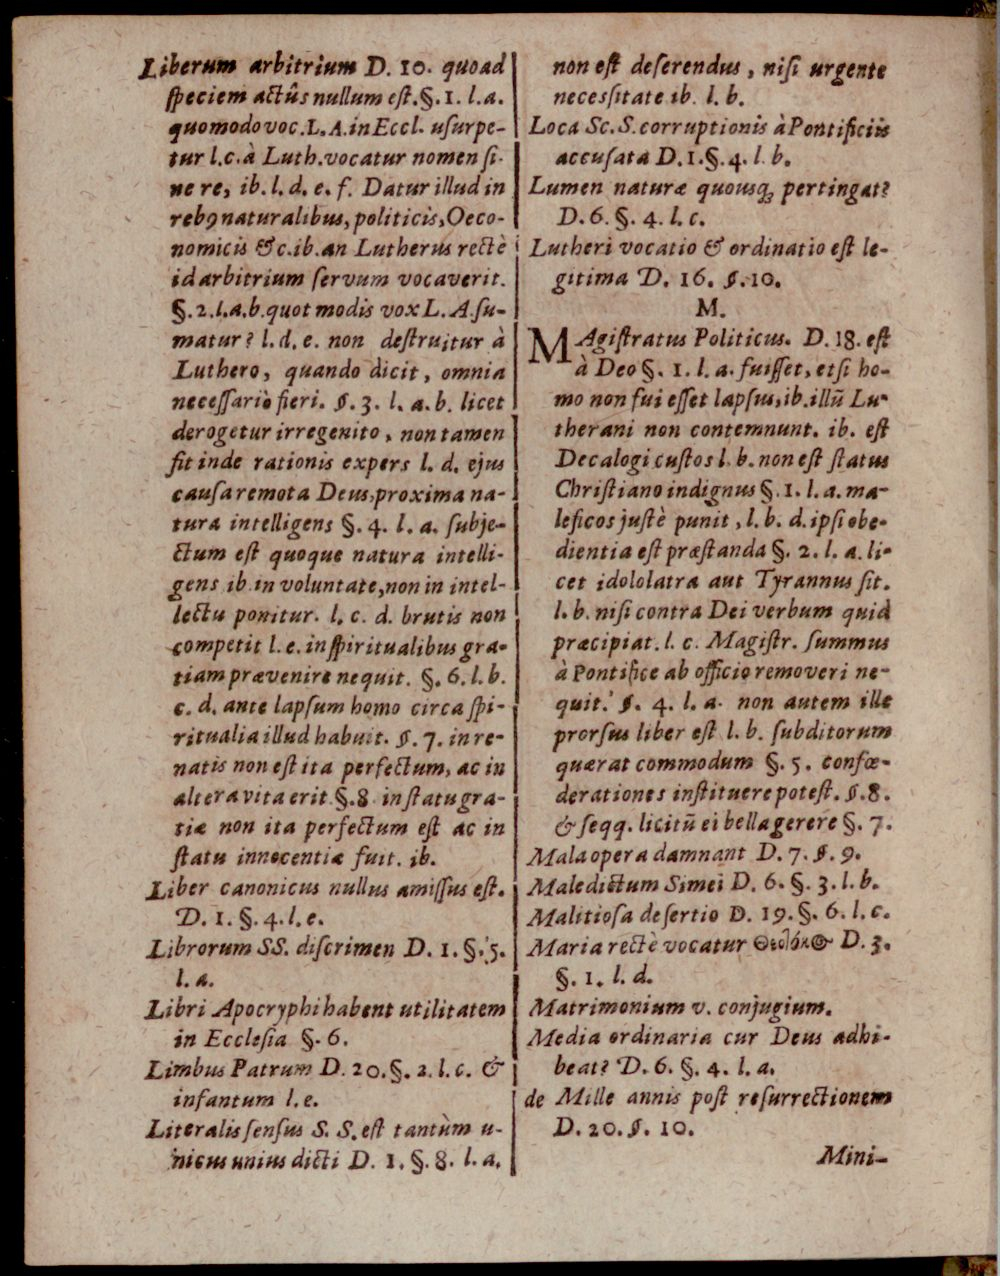 Liberum arbitrium D. 10. quoad
ſpeciem actûs nullum eſt. §. 1. l. a.
quomodo voc. L. A. in Eccl. uſurpe-
tur l. c. à Luth. vocatur nomen ſi-
ne re, ib. l. d. e. f. Datur illud in
rebꝰ naturalibus, politicis, Oeco-
nomicis &c. ib. an Lutherus rectè
id arbitrium ſervum vocaverit.
§. 2. l. a. b. quot modis vox L. A. ſu-
matur? l. d. e. non deſtruitur à
Luthero, quando dicit, omnia
neceſſariò fieri. §. 3. l. a. b. licet
derogetur irregenito, non tamen
fit inde rationis expers l. d. ejus
cauſa remota Deus, proxima na-
tura intelligens §. 4. l. a. ſubje-
ctum eſt quoque natura intelli-
gens ib. in voluntate, non in intel-
lectu ponitur. l. c. d. brutis non
competit l. e. in ſpiritualibus gra-
tiam prævenire nequit. §. 6. l. b.
c. d. ante lapſum homo circa ſpi-
ritualia illud habuit. §. 7. in re-
natis non eſt ita perfectum, ac in
altera vita erit §. 8 in ſtatu gra-
tiæ non ita perfectum eſt ac in
ſtatu innocentiæ fuit. ib.
Liber canonicus nullus amiſſus eſt.
D. 1. §. 4. l. e.
Librorum SS. diſcrimen D. 1. §. 5.
l. a.
Libri Apocryphi habent utilitatem
in Eccleſia §. 6.
Limbus Patrum D. 20. §. 2. l. c. &
infantum l. e.
Literalis ſenſus S. S. eſt tantùm u-
nicus unius dicti D. 1. §. 8. l. a.
non eſt deſerendus, niſi urgente
neceſsitate ib. l. b.
Loca Sc. S. corruptionis à Pontificiis
accuſata D. 1. §. 4. l. b.
Lumen naturæ quousq; pertingat?
D. 6. §. 4. l. c.
Lutheri vocatio & ordinatio eſt le-
gitima D. 16. §. 10.
M.
MAgiſtratus Politicus. D. 18. eſt
à Deo §. 1. l. a. fuiſſet, etſi ho-
mo non fuiſſet lapſus, ib. illũ Lu-
therani non contemnunt. ib. eſt
Decalogi cuſtos l. b. non eſt ſtatus
Chriſtiano indignus §. 1. l. a. ma-
leficos juſtè punit, l. b. d. ipſi obe-
dientia eſt præſtanda §. 2. l. a. li-
cet idololatra aut Tyrannus ſit.
l. b. niſi contra Dei verbum quid
præcipiat. l. c. Magiſtr. ſummus
à Pontifice ab officio removeri ne-
quit. §. 4. l. a. non autem ille
prorſus liber eſt l. b. ſubditorum
quærat commodum §. 5. confœ-
derationes inſtituere poteſt. §. 8.
& ſeqq. licitũ ei bella gerere §. 7.
Mala opera damnant D. 7. §. 9.
Maledictum Simei D. 6. §. 3. l. b.
Malitioſa deſertio D. 19. §. 6. l. c.
Maria rectè vocatur Θεοτόκος D. 3.
§. 1. l. d.
Matrimonium v. conjugium.
Media ordinaria cur Deus adhi-
beat? D. 6. §. 4. l. a.
de Mille annis poſt reſurrectionem
D. 20. §. 10.
Mini-